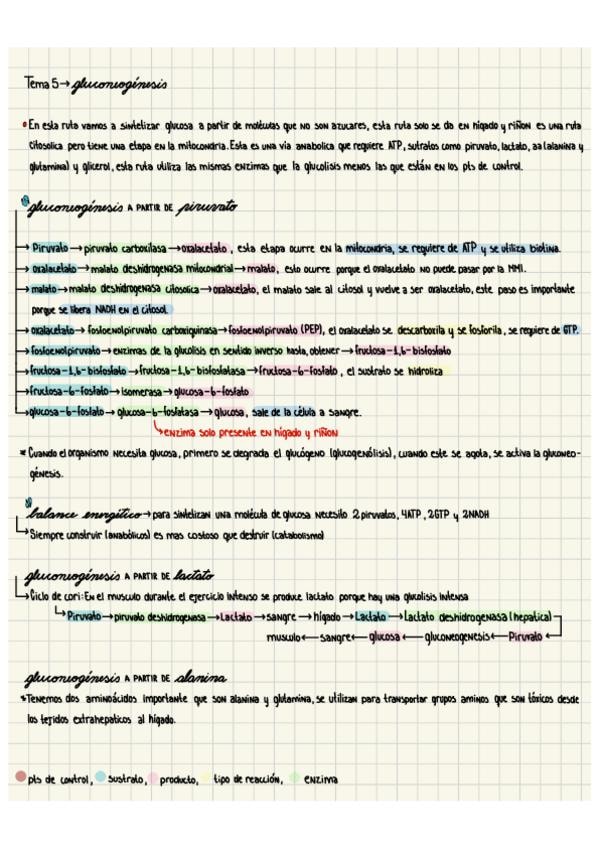 Tema 5→ gluconeogénesis
•En esta ruta vamos a sintetizar glucosa a partir de moléculas que no son azucares, esta ruta solo se da en hígado y riñon es una ruta
citosolica pero tiene una etapa en la mitocondria. Esta es una via anabolica que requiere ATP, sutratos como piruvato, lactato, aa (alanina y
glutamina) y glicerol, esta ruta utiliza las mismas enzimas que la glucolisis menos las que están en los pts de control.
gluconeogénesis A PARTIR DE piruvato
→ Piruvato → piruvato carboxilasa → oxalacetato, esta etapa ocurre en la mitocondria, se requiere de ATP y se utiliza biotina.
→ oxalacetato → malato deshidrogenasa mitocondrial → malato, esto ocurre porque el oxalacetato no puede pasar por la MMI.
→ malato → malato deshidrogenasa citosolica → oxalacetato, el malato sale al citosol y vuelve a ser oxalacetato, este paso es importante
porque se libera NADH en el citosol.
→ oxalacetato → fosfoenolpiruvato carboxiquinasa → fosfoenolpiruvato (PEP), el oxalacetato se descarboxila y se fosforila, se requiere de GTP.
→ fosfoenolpiruvato → enzimas de la glucolisis en sentido inverso hasta, obtener → fructosa-1,6-bisfosfato
→ fructosa-1,6-bisfosfato → fructosa-1,6-bisfosfatasa → fructosa-6-fosfato, el sustrato se hidroliza
→ fructosa-6-fosfato → isomerasa → glucosa-6-fosfato
→ glucosa-6-fosfato → glucosa-6-fosfatasa → glucosa, sale de la célula a sangre.
→ enzima solo presente en hígado y riñon
* Cuando el organismo necesita glucosa, primero se degrada el glucógeno (glucogenólisis), cuando este se agota, se activa la gluconeo-
génesis.
balance energético → para sintetizan una molécula de glucosa necesito 2 piruvatos, 4ATP, 2GTP y 2NADH
→ Siempre construir (anabólicos) es mas costoso que destruir (catabolismo)
gluconeogénesis A PARTIR DE lactato
→ Ciclo de cori: En el musculo durante el ejercicio intenso se produce lactato porque hay una glucolisis intensa
→ Piruvato → piruvato deshidrogenasa → Lactato → sangre → hígado → Lactato → Lactato deshidrogenasa (hepatica)
musculo ← sangre ← glucosa ← gluconeogenesis ← Piruvato ←
gluconeogénesis A PARTIR DE alanina
*Tenemos dos aminoácidos importante que son alanina y glutamina, se utilizan para transportar grupos aminos que son tóxicos desde
los tejidos extrahepaticos al hígado.
pts de control, sustrato, producto, tipo de reacción, enzima